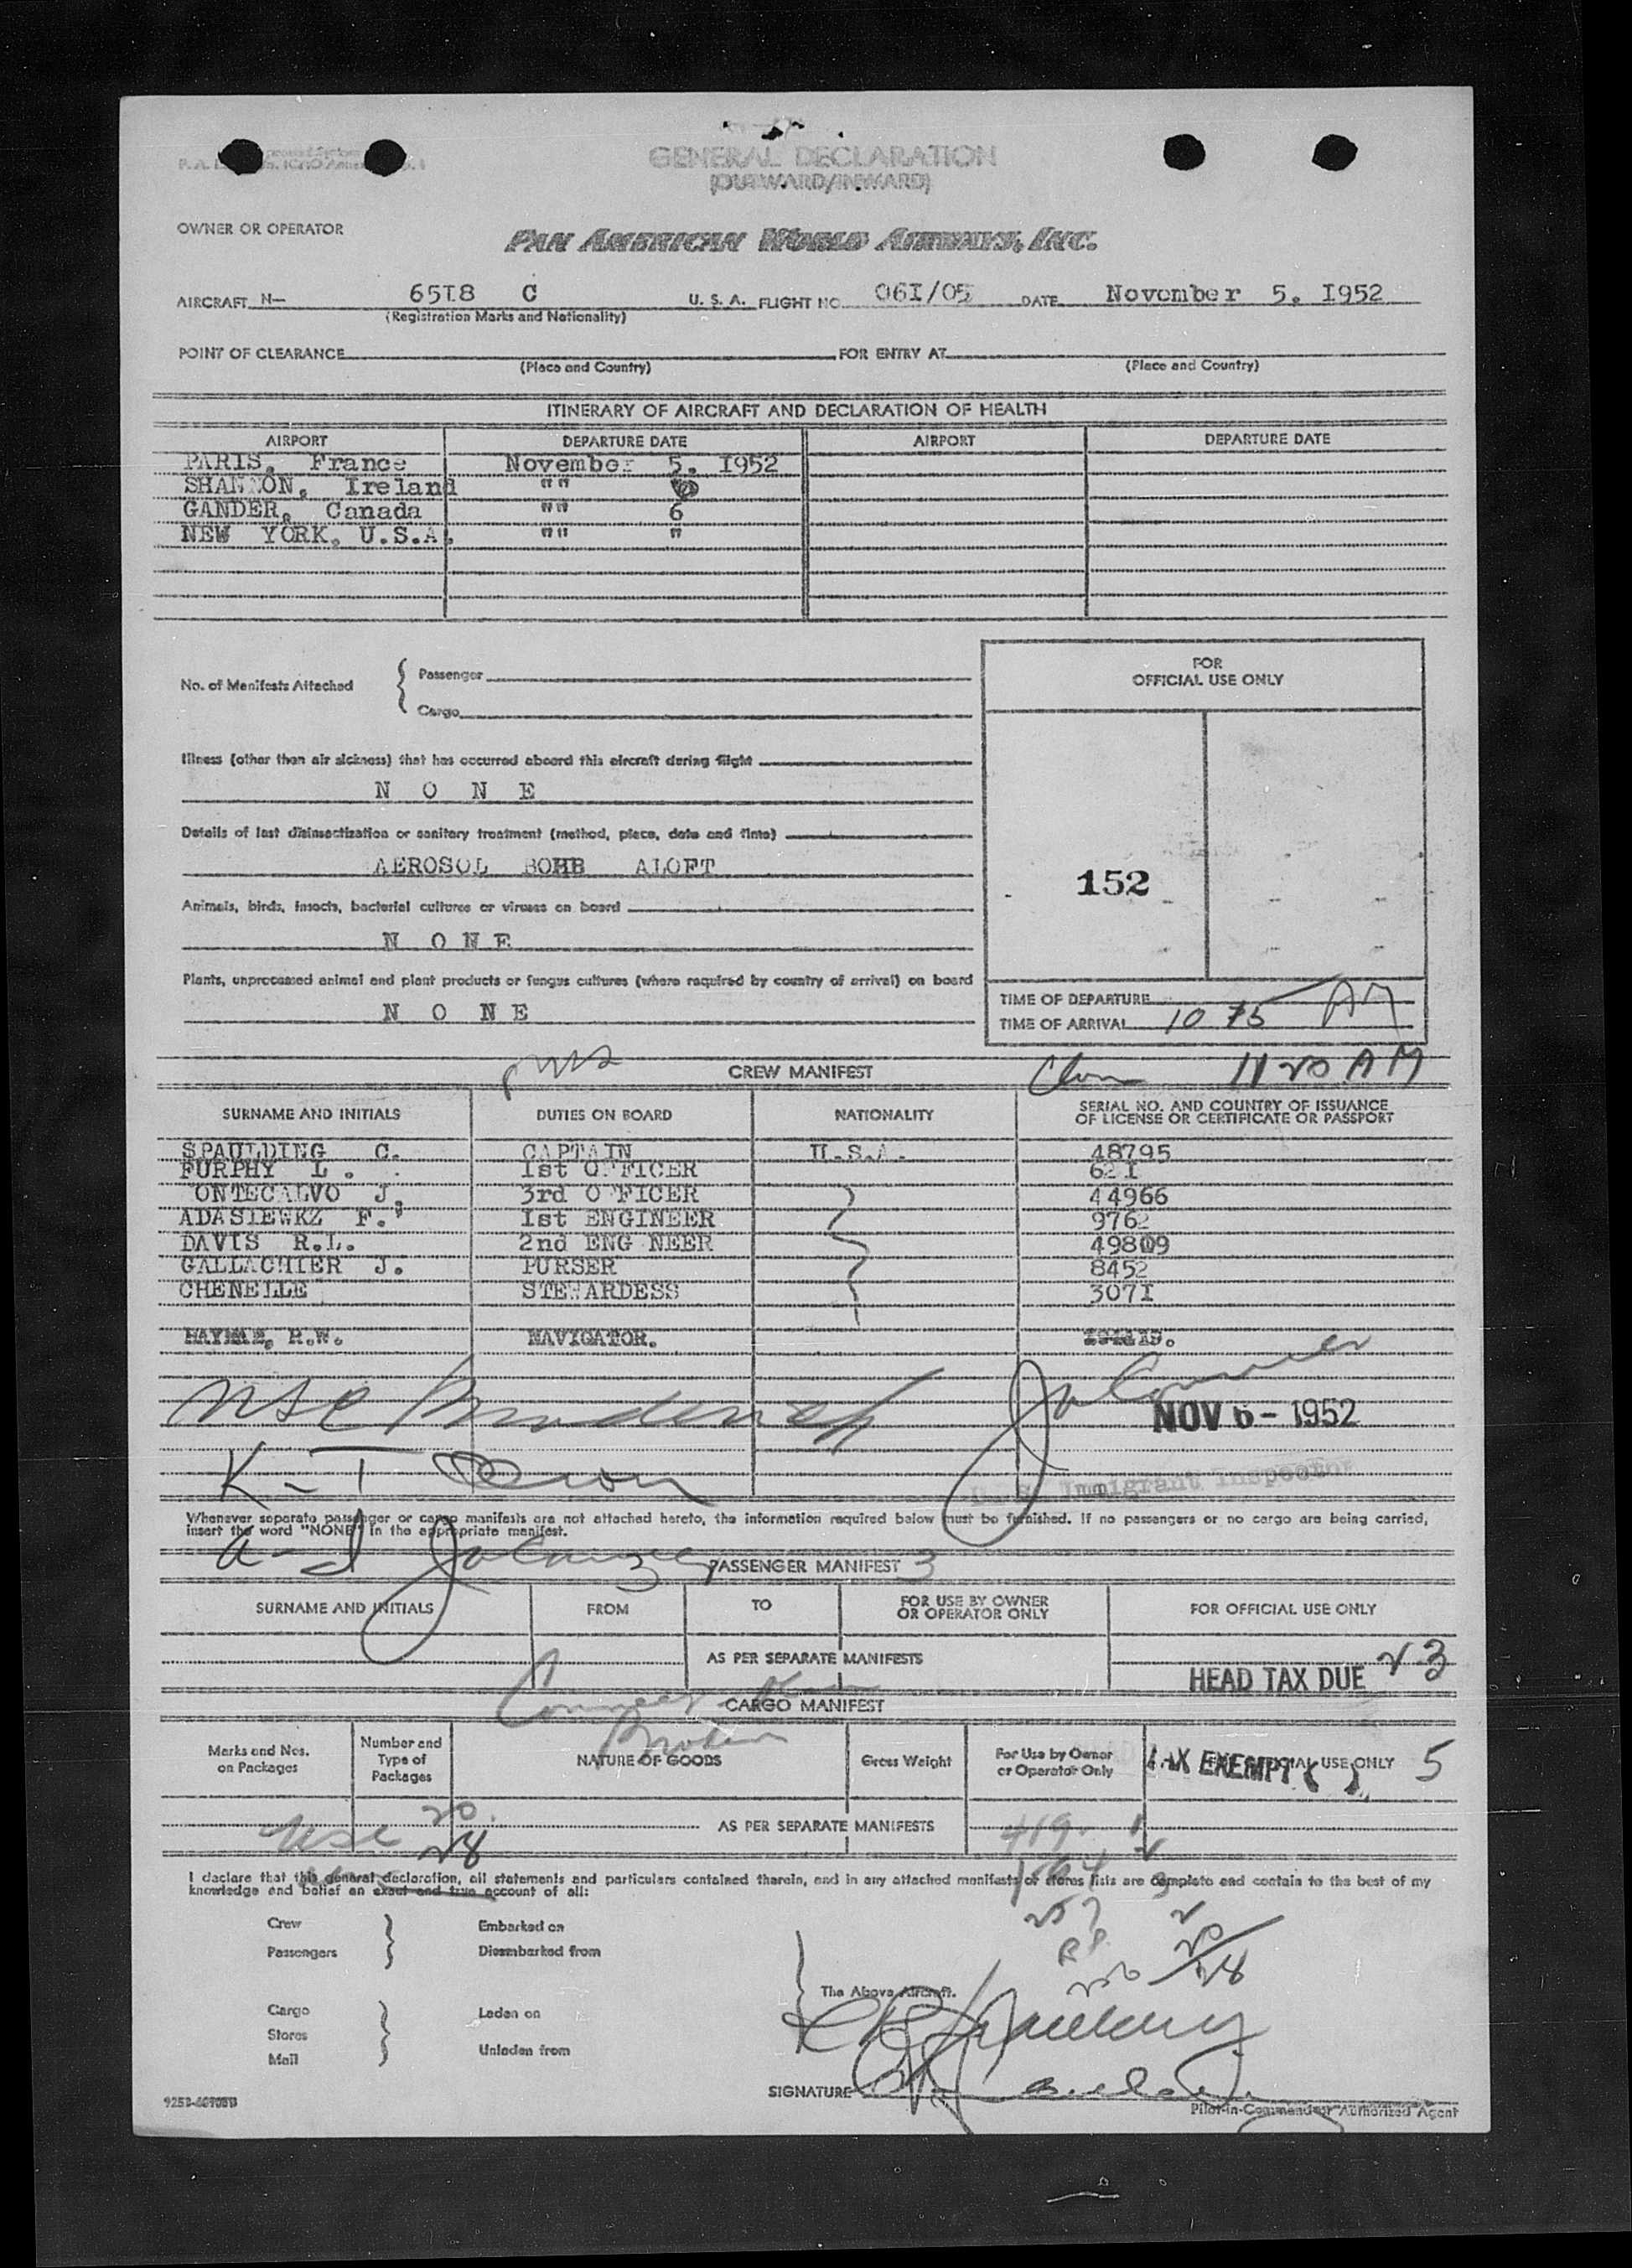 GENERAL DECLARATION
(OUTWARD/INWARD)
OWNER OR OPERATOR PAN AMERICAN WORLD AIRWAYS, INC.
AIRCRAFT N- 65I8 C U. S. A. FLIGHT NO. 06I/05 DATE November 5. I952
(Registration Marks and Nationality)
POINT OF CLEARANCE FOR ENTRY AT
(Place and Country) (Place and Country)
ITINERARY OF AIRCRAFT AND DECLARATION OF HEALTH
AIRPORT DEPARTURE DATE AIRPORT DEPARTURE DATE
PARIS, France November 5. I952
SHANNON, Ireland "" 
GANDER, Canada "" 6
NEW YORK, U.S.A. "" "
No. of Manifests Attached { Passenger
Cargo
FOR
OFFICIAL USE ONLY
Illness (other than air sickness) that has occurred aboard this aircraft during flight
N O N E
Details of last disinsectization or sanitary treatment (method, place, date and time)
AEROSOL BOMB ALOFT
152
Animals, birds, insects, bacterial cultures or viruses on board
N O N E
Plants, unprocessed animal and plant products or fungus cultures (where required by country of arrival) on board
N O N E
TIME OF DEPARTURE
TIME OF ARRIVAL 10 15 AM
CREW MANIFEST 11 20 AM
SURNAME AND INITIALS DUTIES ON BOARD NATIONALITY SERIAL NO. AND COUNTRY OF ISSUANCE
OF LICENSE OR CERTIFICATE OR PASSPORT
SPAULDING C. CAPTAIN U.S.A. 48795
FURPHY L. Ist OFFICER
ONTECALVO J. 3rd O FICER 44966
ADASIEWKZ F. Ist ENGINEER 9762
DAVIS R.L. 2nd ENG NEER 49809
GALLACHIER J. PURSER 8452
CHENELLE STEWARDESS 307I
R.W. NAVIGATOR.
NOV 6 - 1952
U. S. Immigrant Inspector
Whenever separate passenger or cargo manifests are not attached hereto, the information required below must be furnished. If no passengers or no cargo are being carried,
insert the word "NONE" in the appropriate manifest.
PASSENGER MANIFEST 3
SURNAME AND INITIALS FROM TO FOR USE BY OWNER
OR OPERATOR ONLY FOR OFFICIAL USE ONLY
AS PER SEPARATE MANIFESTS
HEAD TAX DUE 23
CARGO MANIFEST
Marks and Nos.
on Packages Number and
Type of
Packages NATURE OF GOODS Gross Weight For Use by Owner
or Operator Only USE ONLY
TAX EXEMPT ( ) 5
USC 20
28
AS PER SEPARATE MANIFESTS
I declare that this general declaration, all statements and particulars contained therein, and in any attached manifests or stores lists are complete and contain to the best of my
knowledge and belief an exact and true account of all:
Crew
Passengers } Embarked on
Disembarked from
The Above Aircraft.
Cargo
Stores
Mail } Laden on
Unladen from
SIGNATURE
Pilot-in-Command or Authorized Agent